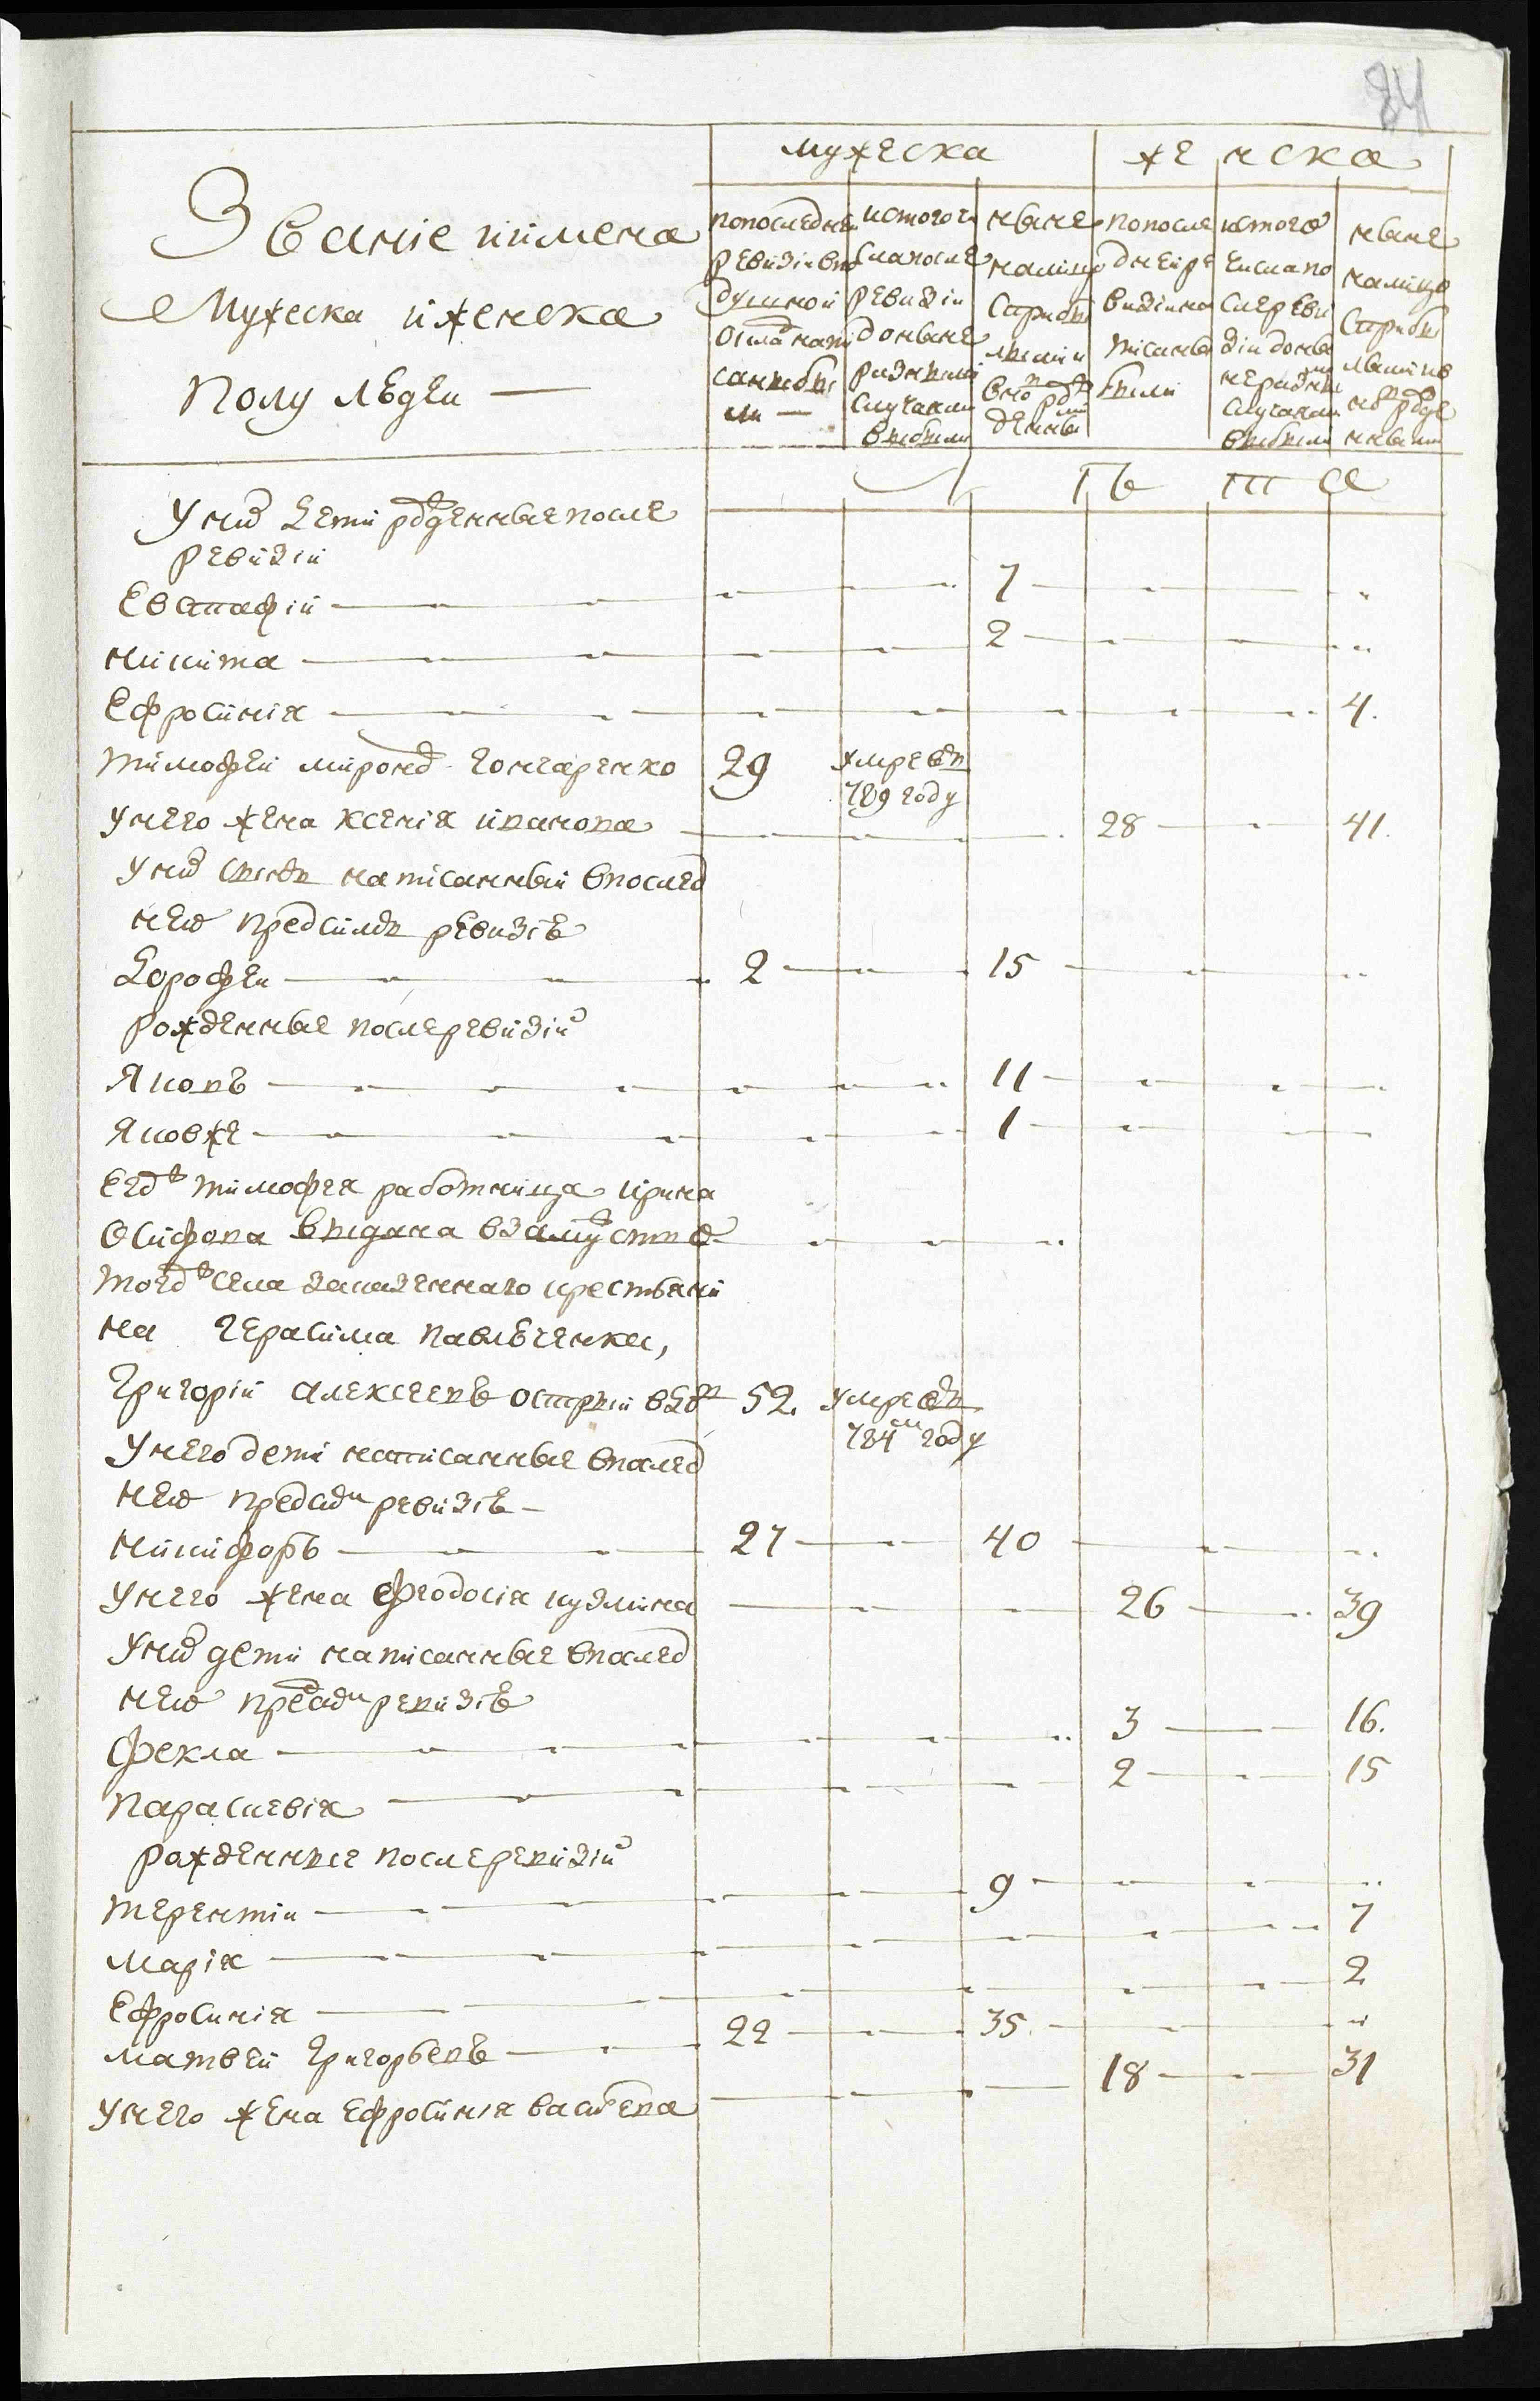 84
мужеска женска
Званіе иимена
мужеска иженска
полу людеи —
попоследнеи
ревизіи впо
душной
написанны
были —
истого чи
сла после
ревизіи
доныне
разными
случаями
выбыли
ныне
налицо
сприбы
лыми и
вновь рож
денны
попосле
дней ре
визіи на
писаны
были
истого
числа по
сле реви
зіи доны
не разны
случаями
выбыли
ныне
налицо
сприбы
лыми и
новорожде
нными
лѣта
у них дети рожденные после
ревизіи
Евстафій 7
никита 2
Ефросинія 4.
тимофеи миронов гончаренко 29 умре въ
789 году
унего жена ксенія иванова 28 41.
у них сынъ написанный впослед
нею пред симъ ревизію
дорофеи 2 15
рожденные послеревизіи
Яковъ 11
Яковже 1
Его тимофея работница ирина
осифова выдана взамужство
тогож села казенного крестьяни
на герасима павлюченка,
григорій алексеевъ острый вдовъ 52. умре въ
784м году
унего дети написанные впослед
нею предсим ревизію —
никифоръ 27 40
унего жена феодосія кузмина 26 39
уних дети написанные впослед
нею предсим ревизію
фекла 3 16.
параскевія 2 15
рожденные послеревизіи
терентіи 9
марія 7
Ефросинія 2
матвей григорьевъ 22 35.
унего жена ефросинія василева 18 31